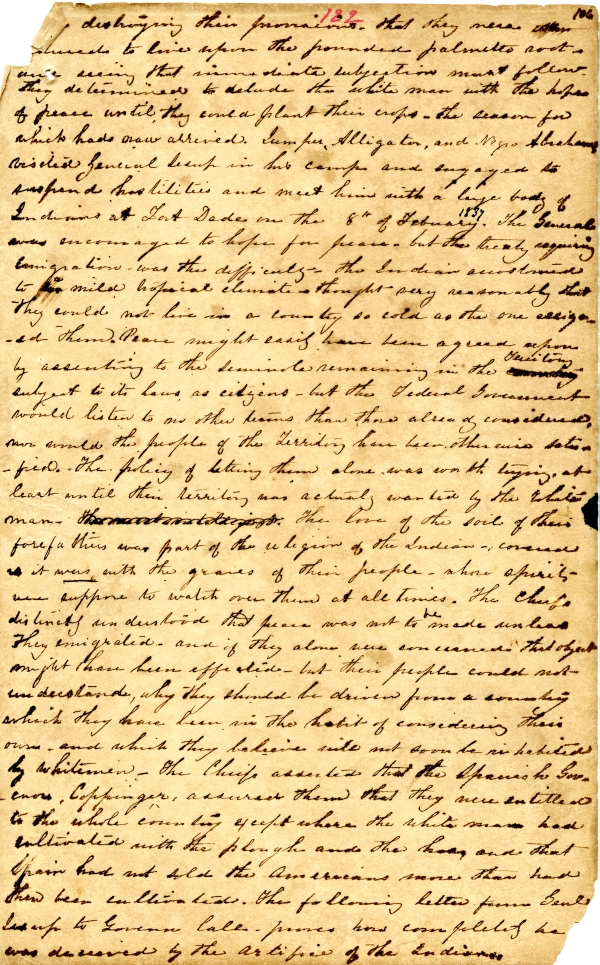 182 106
destroying their provisions. that they were
to live upon the pounded palmetto root -
and seeing that immediate subjection must follow
they determined to delude the white man with the hope
of peace until, they could plant their crops - the season for
which had now arrived. Jumper, Alligator, and Negro Abraham
visited General Jesup in his camp and engaged to
suspend hostilities and meet him with a large body of
Indians at Fort Dade on the 8th of February 1837. The General
was encouraged to hope for peace - but the treaty requiring
emigration - was the difficulty - the Indian accustomed
to mild tropical climate - thought very reasonably that
they could not live in a country so cold as the one assign-
-ed them. Peace might easily have been agreed upon
by assenting to the seminole remaining in the Territory
subject to its laws, as citizens - but the Federal Government
would listen to no other terms than those already considered,
nor would the people of the Territory have been otherwise satis-
-fied. - The policy of letting them alone was worth trying, at
least until their territory was actually wanted by the White
man - The love of the soil of their
forefathers was part of the religion of the Indian -, covered
as it was, with the graves of their people - whose spirits
were suppose to watch over them at all times. The Chiefs
distinctly understood that peace was not to be made unless
they emigrated - and if they alone were concerned that object
might have been effected - but their people could not
understand, why they should be driven from a country
which they have been in the habit of considering their
own - and which they believe will not soon be inhabited
by whitemen - The Chiefs asserted that the Spanish Gov-
-ernor, Coppinger, assured them that they were entitled
to the whole country except where the white man had
cultivated with the plough and the hoe, and that
Spain had not sold the Americans more than had
then been cultivated. The following letter from Genl
Jesup to Governor Call - proves how completely he
was deceived by the artifice of the Indians